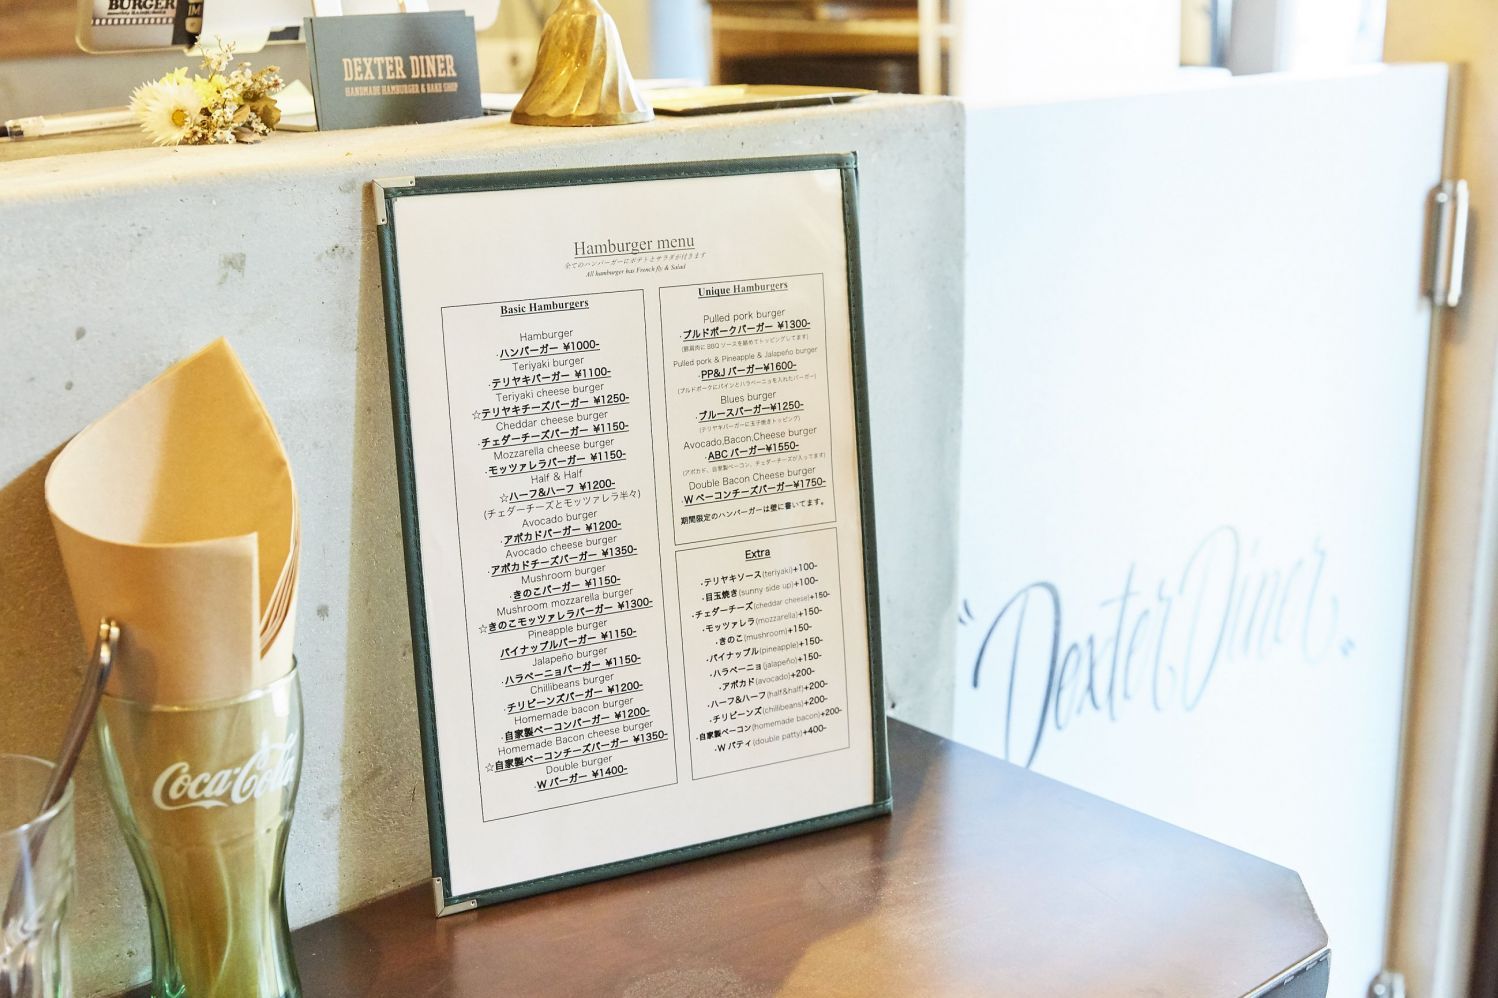 BURGER
DEXTER DINER
HANDMADE HAMBURGER & BAKE SHOP
Hamburger menu
全てのハンバーガーにポテトとサラダが付きます
All hamburger has French fly & Salad
Basic Hamburgers
Hamburger
・ハンバーガー ¥1000-
Teriyaki burger
・テリヤキバーガー ¥1100-
Teriyaki cheese burger
☆テリヤキチーズバーガー ¥1250-
Cheddar cheese burger
チェダーチーズバーガー ¥1150-
Mozzarella cheese burger
・モッツァレラバーガー ¥1150-
Half & Half
☆ハーフ&ハーフ ¥1200-
(チェダーチーズとモッツァレラ半々)
Avocado burger
・アボカドバーガー ¥1200-
Avocado cheese burger
・アボカドチーズバーガー ¥1350-
Mushroom burger
・きのこバーガー ¥1150-
Mushroom mozzarella burger
☆きのこモッツァレラバーガー ¥1300-
Pineapple burger
パイナップルバーガー ¥1150-
Jalapeño burger
・ハラペーニョバーガー ¥1150-
Chillibeans burger
・チリビーンズバーガー ¥1200-
Homemade bacon burger
・自家製ベーコンバーガー ¥1200-
Homemade Bacon cheese burger
☆自家製ベーコンチーズバーガー ¥1350-
Double burger
・W バーガー ¥1400-
Unique Hamburgers
Pulled pork burger
・プルドポークバーガー ¥1300-
Pulled pork & Pineapple & Jalapeño burger
・PP&J バーガー¥1600-
(プルドポークにパインとハラペーニョを入れたバーガー)
Blues burger
・ブルースバーガー¥1250-
(テリヤキバーガーに玉子焼きトッピング)
Avocado,Bacon,Cheese burger
・ABC バーガー¥1550-
(アボカド、自家製ベーコン、チェダーチーズが入ってます)
Double Bacon Cheese burger
・W ベーコンチーズバーガー¥1750-
期間限定のハンバーガーは壁に書いてます。
Extra
・テリヤキソース(teriyaki)+100-
・目玉焼き(sunny side up)+100-
・チェダーチーズ(cheddar cheese)+150-
・モッツァレラ(mozzarella)+150-
・きのこ(mushroom)+150-
・パイナップル(pineapple)+150-
・ハラペーニョ(jalapeño)+150-
・アボカド(avocado)+200-
・ハーフ&ハーフ(half&half)+200-
・チリビーンズ(chillibeans)+200-
・自家製ベーコン(homemade bacon)+200-
・W パティ(double patty)+400-
Coca-Cola
"Dexter Diner"